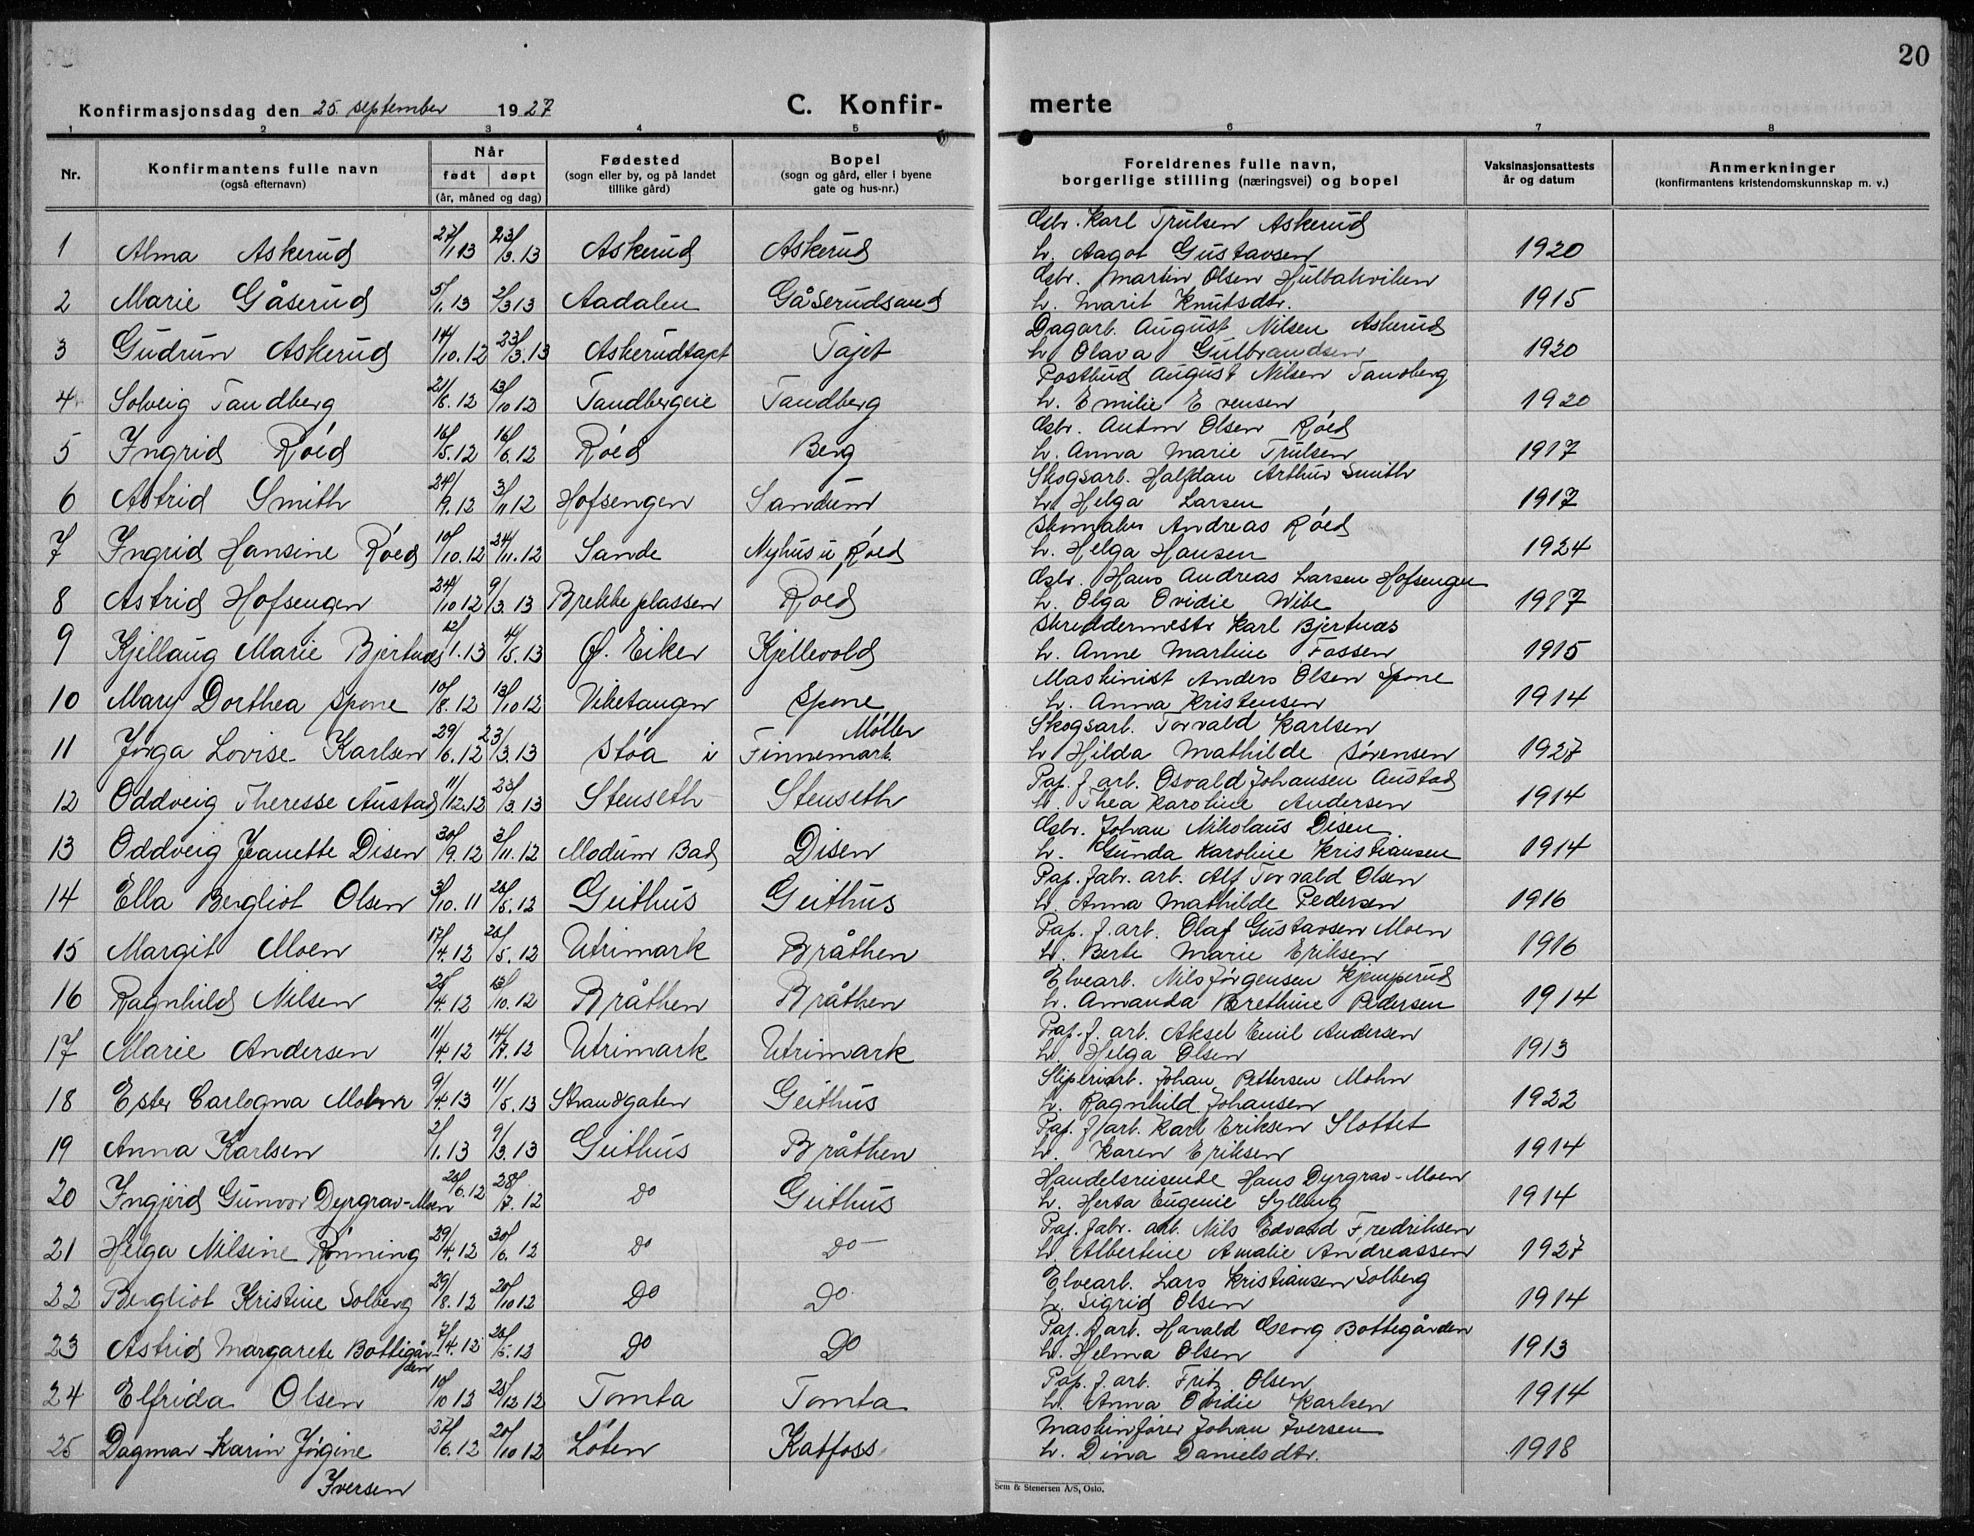 20
Konfirmasjonsdag den 25. september 1927 C. Konfirmerte
1 2 3 4 5 6 7 8
Nr. Konfirmantens fulle navn (også efternavn) Når født døpt (år, måned og dag) Fødested (sogn eller by, og på landet tillike gård) Bopel (sogn og gård, eller i byene gate og hus-nr.) Foreldrenes fulle navn, borgerlige stilling (næringsvei) og bopel Vaksinasjonsattests år og datum Anmerkninger (konfirmantens kristendomskunnskap m. v.)
Gsbr. Karl Trulsen Askerud
1 Alma Askerud 27/1 13 23/3.13 Askerud Askerud h. Aagot Gustavsen 1920
Gsbr. Martin Olsen Hulbakviken
2 Marie Gåserud 5/1.13 2/3 13 Aadalen Gåserudsand h. Marit Knutsdtr. 1915
Dagarb. August Nilsen Askerud
3 Gudrun Askerud 14/10.12 23/3.13 Askerudtajet Tajet h. Olava Gulbrandsen 1920
Postbud August Nilsen Tandberg
4 Solveig Tandberg 21/6.12 13/10 12 Tandbergeie Tandberg h. Emilie Evensen 1920
Gsbr. Anton Olsen Røed
5 Ingrid Røed 16/5.12 16/6.12 Røed Berg h. Anna Marie Trulsen 1917
Skogsarb. Halfdan Arthur Smith
6 Astrid Smith 24/9.12 3/11 12 Hofsengen Sandum h. Helga Larsen 1917
Skomaker Andreas Røed
7 Ingrid Hansine Røed 10/10.12 24/11.12 Sande Nyhus u. Røed h. Helga Hansen 1924
Gsbr. Hans Andreas Larsen Hofsengen
8 Astrid Hofsengen 24/10 12 9/3 13 Brekkeplassen Røed h. Olga Ovidie Wibe 1917
Skreddermestr Karl Bjertnæs
9 Kjellaug Marie Bjertnæs 12/1.13 4/5.13 Ø. Eiker Kjellevold h. Anne Martine Fossen 1915
Maskinist Anders Olsen Spone
10 Mary Dorthea Spone 10/8.12 13/10 12 Viketangen Spone h. Anna Kristensen 1914
Skogsarb. Torvald Karlsen
11 Jørga Lovise Karlsen 29/6.12 23/3.13 Støa i Finnemark. Møller h. Hilda Mathilde Sørensen 1927
Pap. f. arb. Osvald Johansen Austad
12 Oddveig Theresse Austad 11/12.12 23/3 13 Stenseth Stenseth h. Thea Karoline Andersen 1914
Gsbr. Johan Nikolaus Disen
13 Oddveig Jeanette Disen 30/9.12 3/11.12 Modum Bad Disen h. Gunda Karoline Kristiansen 1914
Pap. fabr. arb. Alf Torvald Olsen
14 Ella Bergliot Olsen 3/10.11 26/5.12 Geithus Geithus h. Anna Mathilde Pedersen 1916
Pap. f. art. Olaf Gustavsen Moen
15 Margit Moen 17/4.12 26/5.12 Utrimark Bråthen h. Berte Marie Eriksen 1916
Elvearb. Nils Jørgensen Kjemperud
16 Ragnhild Nilsen 26/4.12 13/10.12 Bråthen Bråthen h. Amanda Brethine Pedersen 1914
Pap. f. arb. Aksel Emil Andersen
17 Marie Andersen 11/4 12 14/7.12 Utrimark Utrimark h. Helga Olsen 1913
Sliperiarb. Johan Pettersen Mohn
18 Ester Carlogna Mohn 9/4.13 11/5.13 Strandgaten Geithus h. Ragnhild Johansen 1922
Pap. f. arb. Karl Eriksen Slottet
19 Anna Karlsen 2/1.13 9/3.13 Geithus Bråthen h. Karen Eriksen 1914
Handelsreisende Hans Dyrgrav-Moen
20 Ingjerd Gunvor Dyrgrav-Moen 26/6.12 28/7.12 Do Geithus h. Herta Eugenie Sylling 1914
Pap. fabr. arb. Nils Edvard Fredriksen
21 Helga Nilsine Rønning 29/4.12 30/6.12 Do Do h. Albertine Amalie Andreassen 1927
Elvearb. Lars Kristiansen Solberg
22 Bergliot Kristine Solberg 29/8.12 20/10 12 Do Do h. Sigrid Olsen 1914
Pap. f. arb. Harald Georg Bottegården
23 Astrid Margarete Bottigården 7/4.12 26/5.12 Do Do h. Helma Olsen 1913
Pap. f. art. Fritz Olsen
24 Elfrida Olsen 10/10 12 25/12 12 Tomta Tomta h. Anna Ovidie Karlsen 1914
Maskinfører Johan Iversen
25 Dagmar Karin Jørgine 27/6.12 20/10 12 Løten Katfoss h. Dina Danielsdtr. 1918
Iversen
Sem & Stenersen A/S, Oslo.